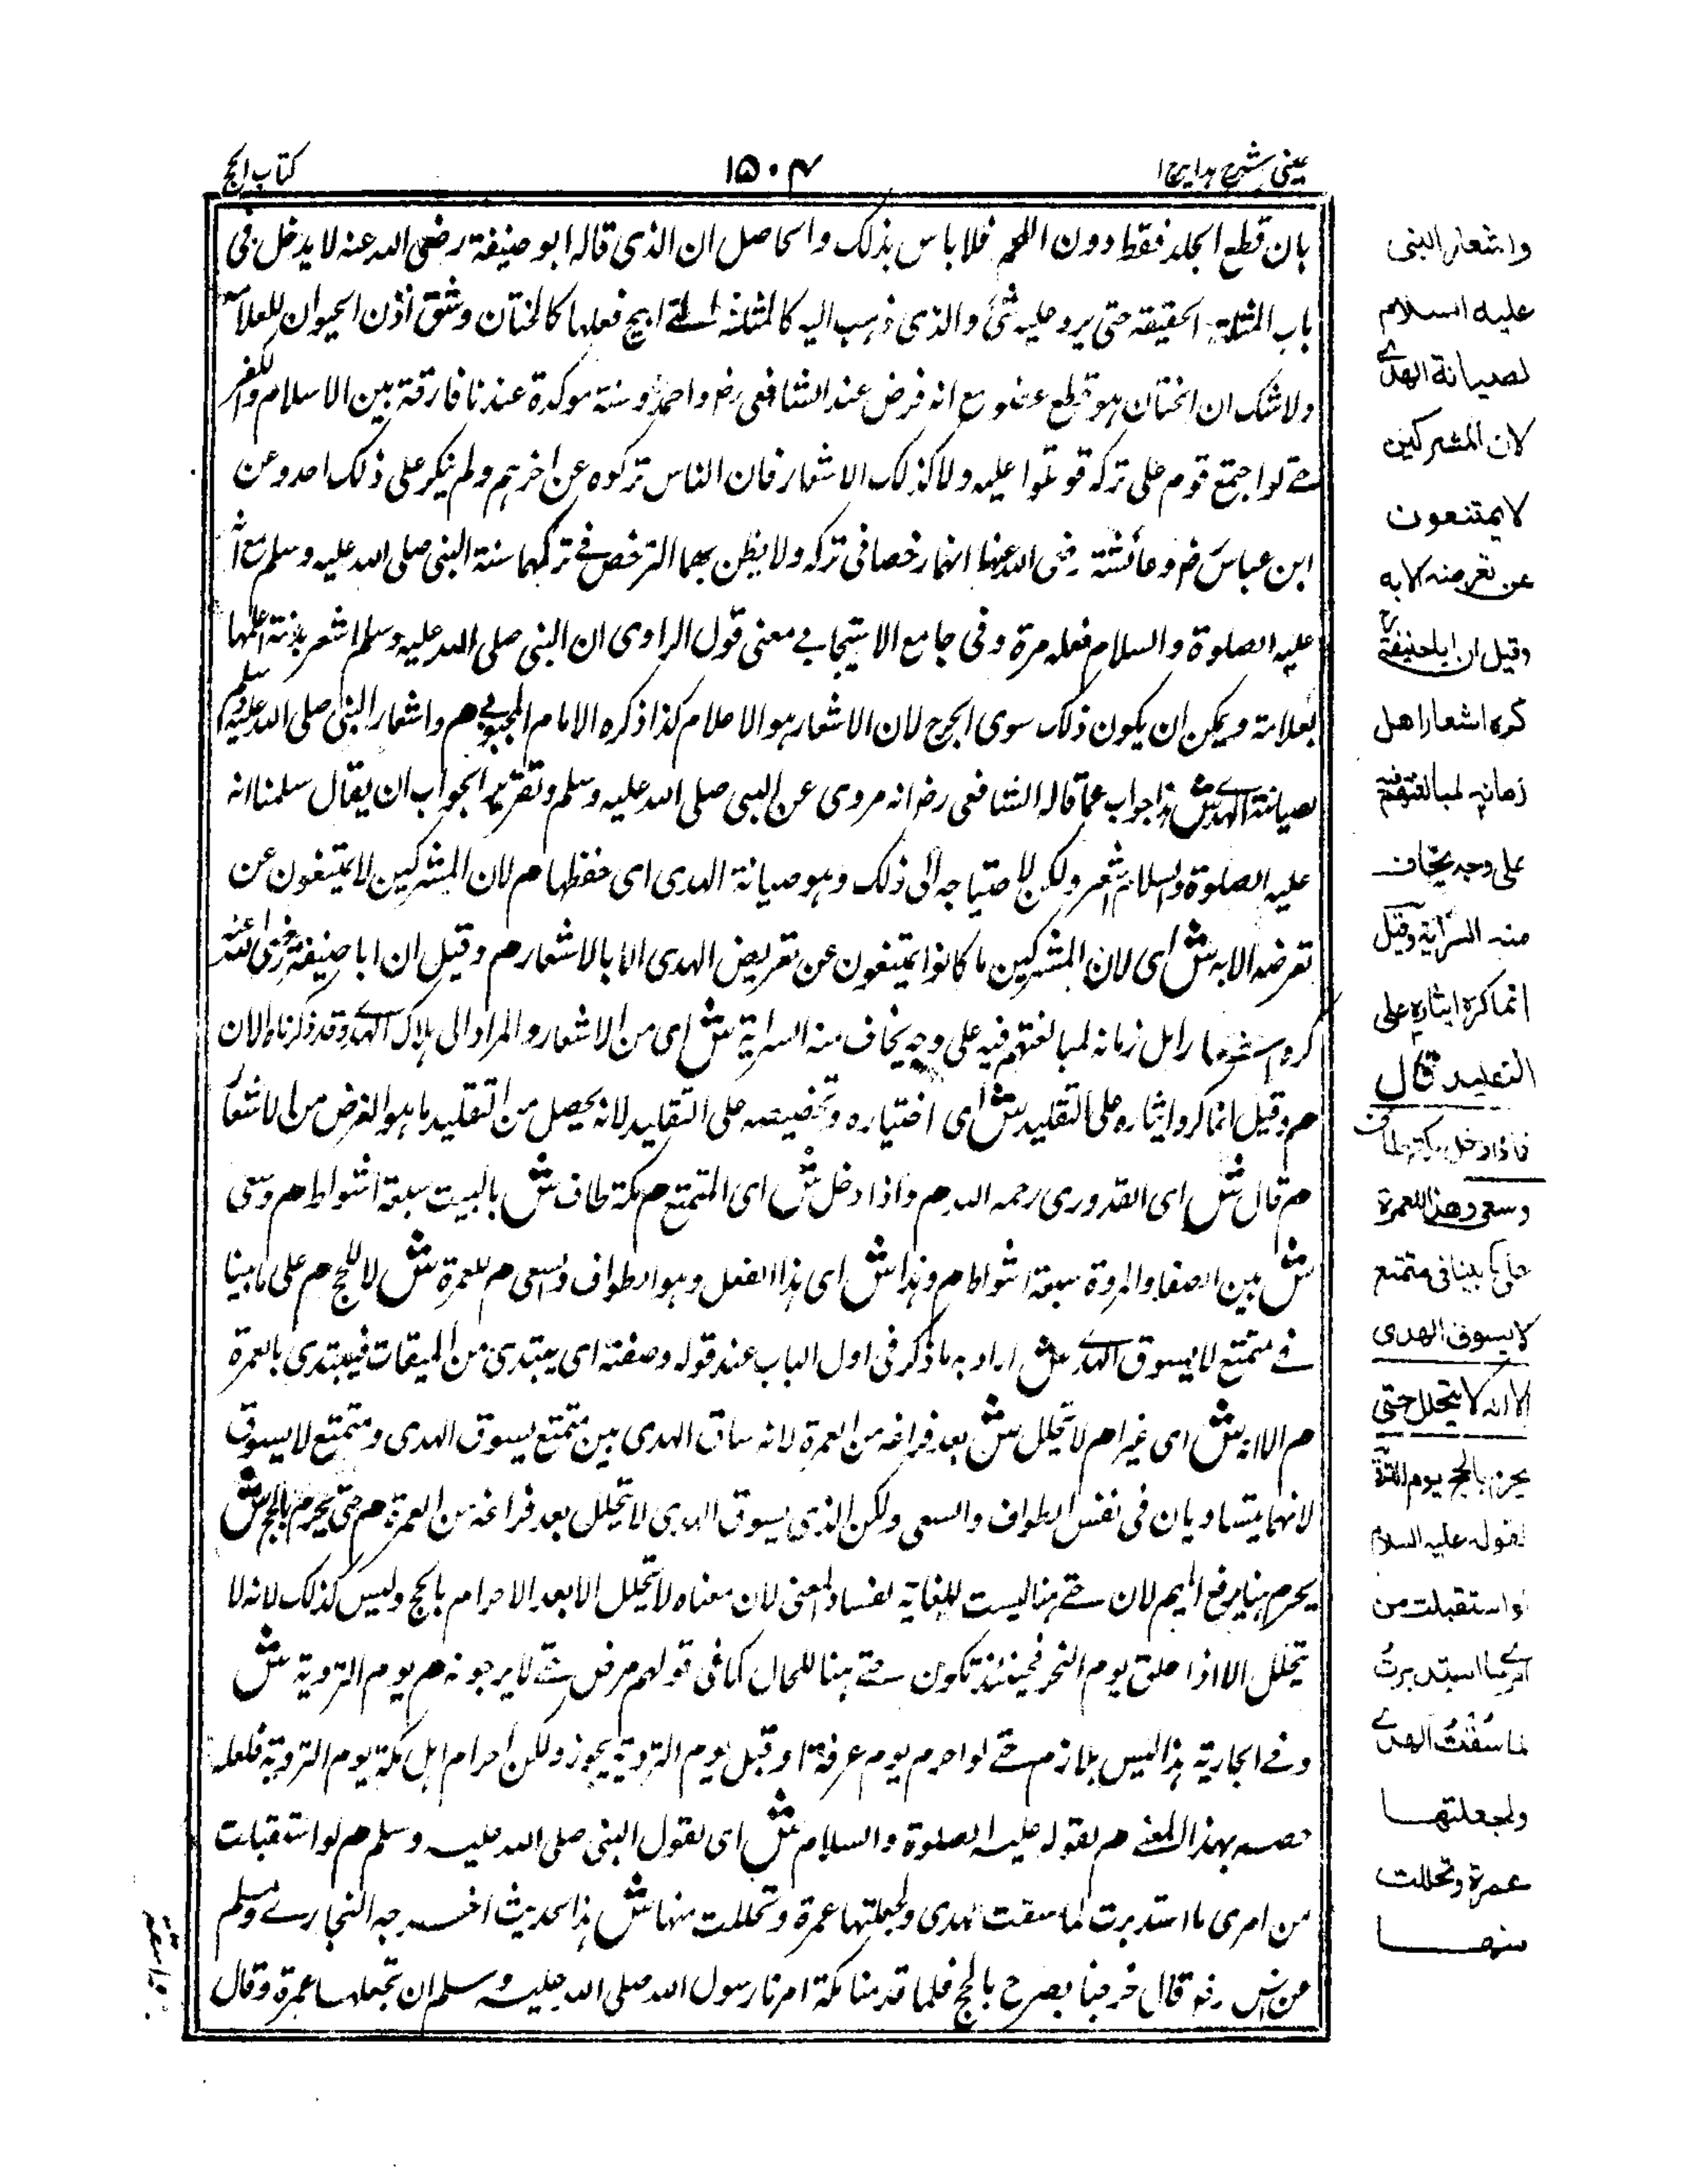 عینی شرح ہدایہ ج ا
۱۵۰۴
کتاب الحج
بان قطع الجلد فقط دون اللحم فلا باس بذلک والحاصل ان الذی قالہ ابو حنیفة رضی اللہ عنہ لا یدخل فی
باب المثلة الحقیقة حتی یرد علیہ شئ والذی ذہب الیہ کالمثلة التے ابیح فعلہا کالختان وشق اذن الحیوان للعلامة
ولا شک ان الختان ہو قطع عضو مع انہ فرض عند الشافعی رض واحمد وسنة موکدة عندنا فارقة بین الاسلام والکفر
حتے لو اجتمع قوم علی ترکہ قوتلوا علیہ ولا کذلک الاشعار فان الناس ترکوہ عن اخرہم ولم ینکر علی ذلک احد وعن
ابن عباس رض وعائشة رضی اللہ عنہا انہما رخصا فی ترکہ ولا یظن بہما الترخص فے ترکہما سنة النبی صلی اللہ علیہ وسلم مع انہ
علیہ الصلوة والسلام فعلہ مرة وفی جامع الاسبیجابے معنی قول الراوی ان النبی صلی اللہ علیہ وسلم اشعر بدنة اعلمہا
بعلامة ویمکن ان یکون ذلک سوی الجرح لان الاشعار ہو الاعلام کذا ذکرہ الامام المحبوبی ھم واشعار النبی صلی اللہ علیہ وسلم
لصیانة الہدے ش ہذا جواب عما قالہ الشافعی رض انہ مروی عن النبی صلی اللہ علیہ وسلم وتقریر الجواب ان یقال سلمنا انہ
علیہ الصلوة والسلام اشعر ولکن لاحتیاجہ الی ذلک وہو صیانة الہدی ای حفظہا م لان المشرکین لا یمتنعون عن
تعرضہ الا بہ ش ای لان المشرکین ما کانوا یمتنعون عن تعریض الہدی الا بالاشعار م وقیل ان ابا حنیفة رضی اللہ عنہ
کرہ اشعار اہل زمانہ لمبالغتہم فیہ علی وجہ یخاف منہ السرایة ش ای من الاشعار والمراد الی ہلاک الہدے وقد ذکرناہ الان
م وقیل انما کرہ ایثارہ علی التقلید ش ای اختیارہ وتخصیصہ علی التقلید لانہ یحصل من التقلید ما ہو الغرض من الاشعار
م قال ش ای القدوری رحمہ اللہ م واذا دخل ش ای المتمتع م مکة طاف ش بالبیت سبعة اشواط م وسعی
ش بین الصفا والمروة سبعة اشواط م وہذا ش ای ہذا الفعل وہو الطواف والسعی م للعمرة ش لا للحج م علی ما بینا
فے متمتع لا یسوق الہدے ش اراد بہ ما ذکر فی اول الباب عند قولہ وصفتہ ای یبتدئ من المیقات فیبتدی بالعمرة
م الا انہ ش ای غیر انہ م لا یتحلل ش بعد فراغہ من العمرة لانہ ساق الہدی بین متمتع یسوق الہدی ومتمتع لا یسوق
لانہما یتساویان فی نفس الطواف والسعی ولکن الذی یسوق الہدی لا یتحلل بعد فراغہ من العمرة م حتی یحرم بالحج ش
یحرم ہنا برفع المیم لان حتے ہنا لیست للغایة لفساد المعنی لان معناہ لا یتحلل الا بعد الاحرام بالحج ولیس کذلک لانہ لا
یتحلل الا اذا حلق یوم النحر فحینئذ تکون حتے ہنا للحال کما فی قولہم مرض حتے لا یرجونہ م یوم الترویة ش
وفے الجاریة ہذا لیس بلازم حتے لو احرم یوم عرفة او قبل یوم الترویة یجوز ولکن احرام اہل مکة یوم الترویة فلعلہ
خصہ بہذا المعنے م لقولہ علیہ الصلوة والسلام ش ای لقول النبی صلی اللہ علیہ وسلم م لو استقبلت
من امری ما استدبرت لما سقت الہدی ولجعلتہا عمرة وتحللت منہا ش ہذا الحدیث اخرجہ البخارے ومسلم
من انس رض قال خرجنا بصرح بالحج فلما قدمنا مکة امرنا رسول اللہ صلی اللہ علیہ وسلم ان نجعلہا عمرة وقال
واشعار النبی
علیہ السلام
لصیانة الھدے
لان المشرکین
لا یمتنعون
عن تعرضہ الا بہ
وقیل ان ابا حنیفة
کرہ اشعار اھل
زمانہ لمبالغتھم فیہ
علی وجہ یخاف
منہ السرایة وقیل
انما کرہ ایثارہ علی
التقلید قال
فاذا دخل مکة طاف
وسعی وھذا للعمرة
علی ما بینا فی متمتع
لا یسوق الھدی
الا انہ لا یتحلل حتی
یحرم بالحج یوم الترویة
لقولہ علیہ السلام
لو استقبلت من
امرے ما استدبرتُ
لما سُقْتُ الھدے
ولجعلتھا
عمرة وتحللت
منھا